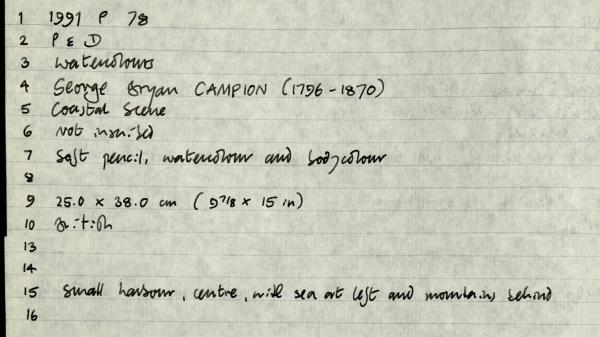 1 1991 P 78
2 P & D
3 Watercolours
4 George Bryan CAMPION (1796-1870)
5 Coastal Scene
6 Not inscribed
7 Soft pencil, watercolour and bodycolour
8
9 25.0 x 38.0 cm (9 7/8 x 15 in)
10 British
13
14
15 Small harbour, centre, with sea at left and mountains behind
16